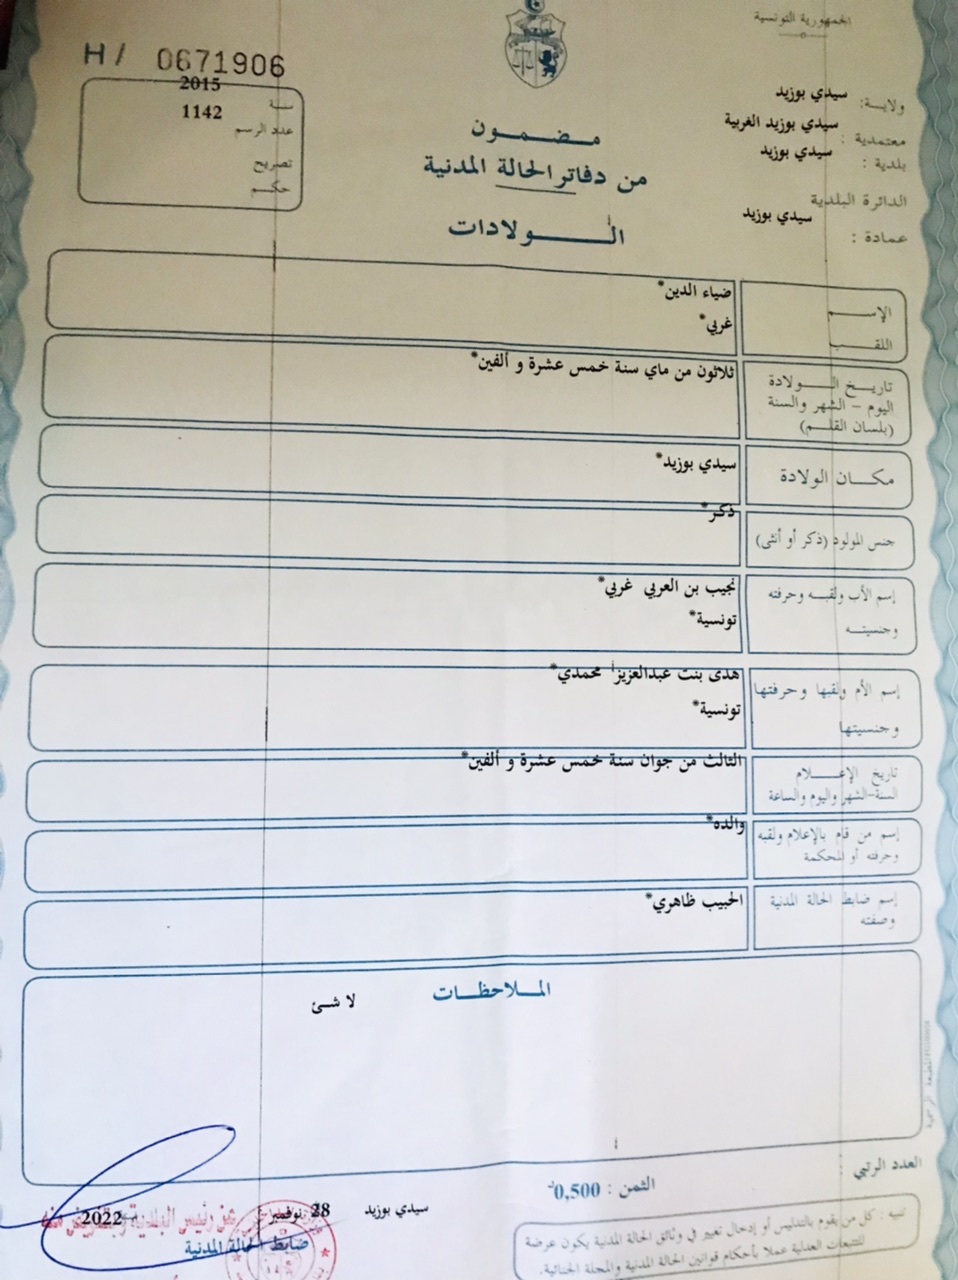 الجمهورية التونسية
H/ 0671906
سنة 2015
عدد الرسم 1142
تصريح
حكم
ولاية: سيدي بوزيد
معتمدية : سيدي بوزيد الغربية
بلدية : سيدي بوزيد
الدائرة البلدية
عمادة : سيدي بوزيد
مضمون
من دفاتر الحالة المدنية
الولادات
الإسم ضياء الدين*
اللقب غربي*
تاريخ الولادة
اليوم – الشهر والسنة
(بلسان القلم)
ثلاثون من ماي سنة خمس عشرة و ألفين*
مكان الولادة سيدي بوزيد*
جنس المولود (ذكر أو أنثى) ذكر*
إسم الأب ولقبه وحرفته
وجنسيته
نجيب بن العربي غربي*
تونسية*
إسم الأم ولقبها وحرفتها
وجنسيتها
هدى بنت عبدالعزيز محمدي*
تونسية*
تاريخ الإعلام
السنة-الشهر واليوم والساعة
الثالث من جوان سنة خمس عشرة و ألفين*
إسم من قام بالإعلام ولقبه
وحرفته أو المحكمة
والده*
إسم ضابط الحالة المدنية
وصفته
الحبيب ظاهري*
الملاحظات
لا شئ
العدد الرتبي :
الثمن : 0,500د
سيدي بوزيد 28 نوفمبر 2022
عن رئيس البلدية وبتفويض منه
ضابط الحالة المدنية
تنبيه : كل من يقوم بالتدليس أو إدخال تغيير في وثائق الحالة المدنية يكون عرضة
للتتبعات العدلية عملا بأحكام قوانين الحالة المدنية والمجلة الجنائية.